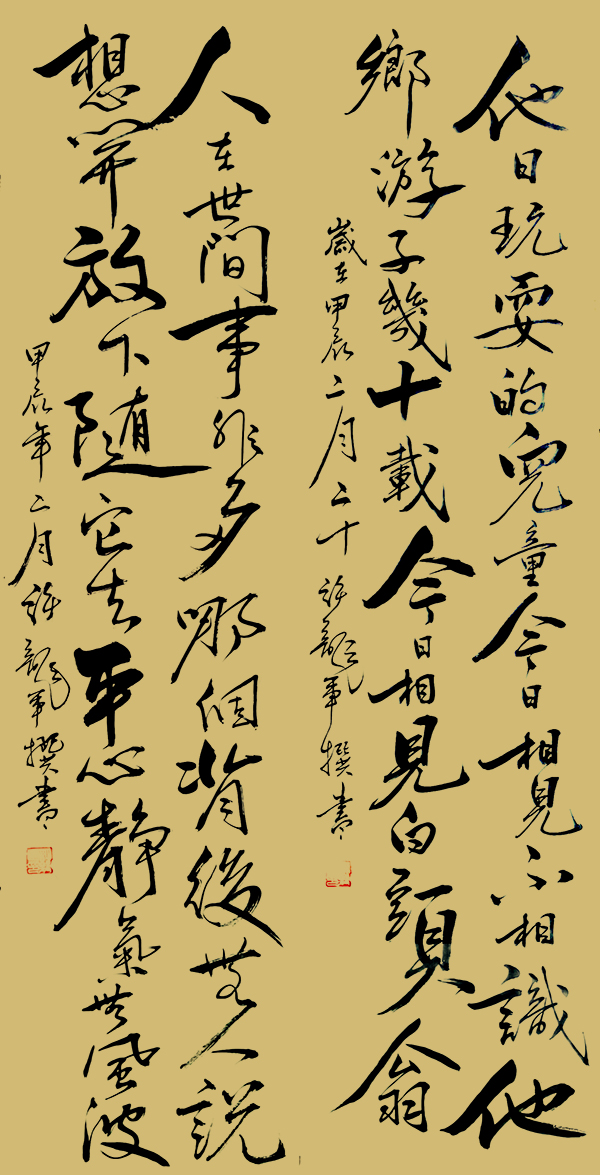 他日玩耍的兒童今日相見不相識他
鄉游子幾十載今日相見白頭翁
歲在甲辰二月二十許龍軍撰書
人在世間事非多哪個背後無人說
想開放下隨它去平心靜氣無風波
甲辰年二月許龍軍撰書